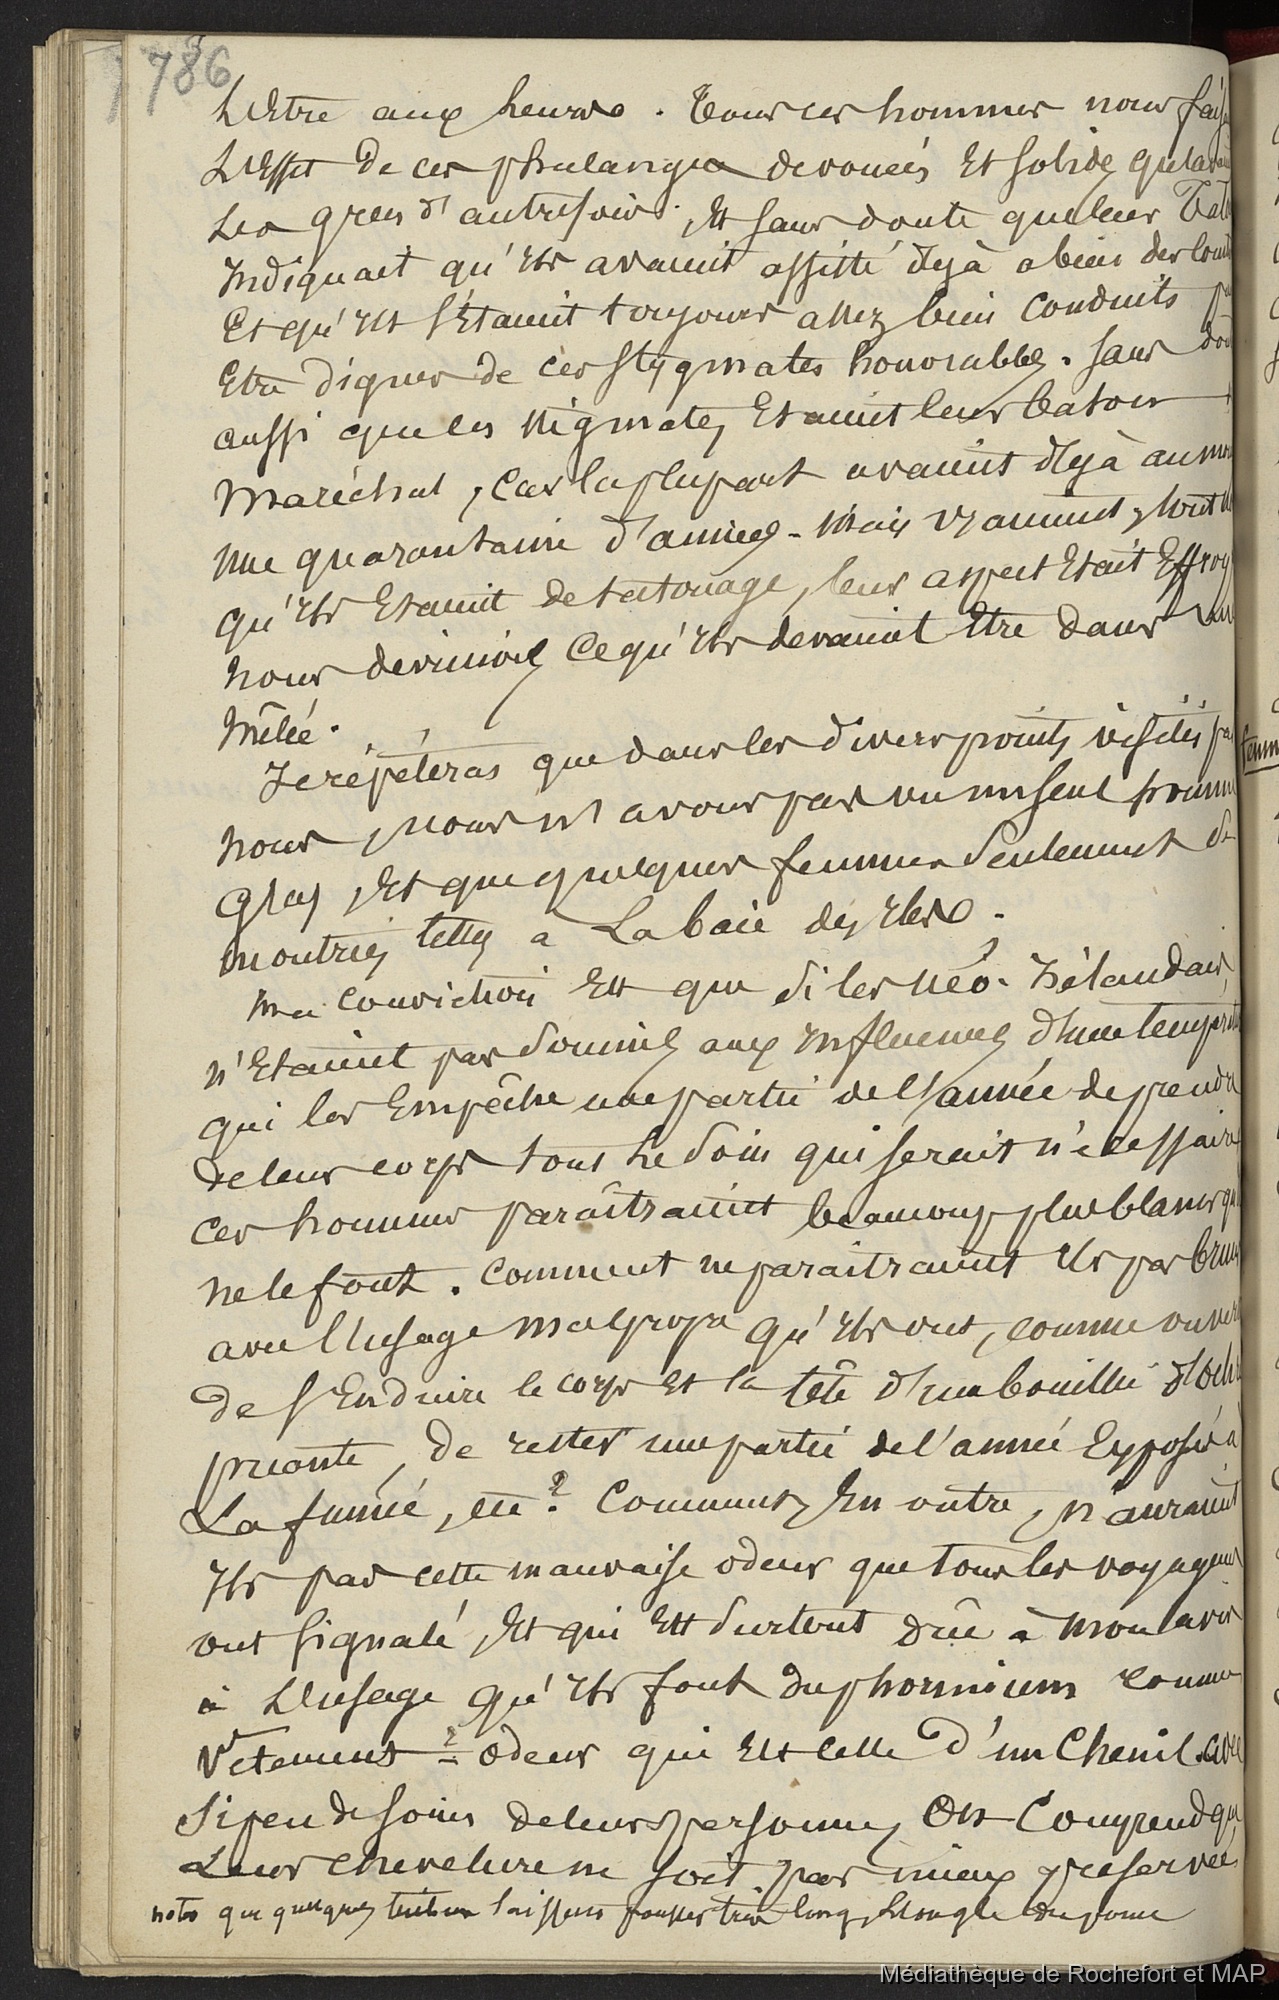 786
L'Etre aux heures. Tous ces hommes nous fais
L'Effet de ces phalanges devouées Et solides qu'avai
Les grecs d'autrefois. Et sans doute que leur Tato
Indiquait qu'Ils avaient assisté déjà a bien des lutt
Et qu'Ils s'Etaient toujours assez bien conduits p
Etre dignes de ces stygmates honorables. sans dou
aussi que les stigmates Etaient leur baton
Marechal, car la plupart avaient déjà au mo
une quarantaine d'années. Mais vraiment,
qu'Ils Etaient de tatouage, leur aspect Etait Effroy
nous devinions ce qu'Ils devaient Etre dans une
mêlée.
Je répéteras que dans les divers points visités pa
nous, nous n'avons pas vu un seul homme
Gras, Et que quelques femmes seulement de
montrées telles a La baie des Iles.
ma conviction Est que si les néo-Zélandais,
n'Etaient pas soumis aux Influences d'une tempér
qui les Empêche une partie de l'année de prendre
de leur corps tous le soin qui serait nécessaire
ces hommes paraîtraient beaucoup plus blancs qu
ne le font. comment ne paraitraient Ils pas bruns
avec l'usage malpropre qu'Ils ont, comme on
de s'Enduire le corps Et la tête d'une bouillie d'Och
puante, de rester une partie de l'année Exposés à
La fumée, etc? Comment, En outre, n'auraient
Ils pas cette mauvaise odeur que tous les voyageurs
ont signalé, Et qui Est surtout dûe à mon avis
à L'usage qu'Ils font du phormium comme
Vetements? odeur qui Est celle d'un Chenil. avec
si peu de soins de leurs personnes On Comprend que
Leur chevelure ne soit pas mieux préservée,
notes que quelques tribus laissent pousser très long, L'ongle du pouce
femm
Médiathèque de Rochefort et MAP